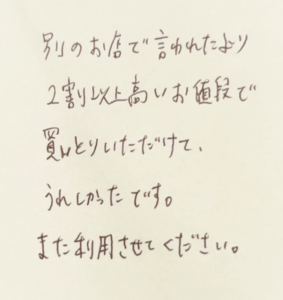 別のお店で言われたより
2割り以上高いお値段で
買いとりいただけて、
うれしかったです。
また利用させてください。